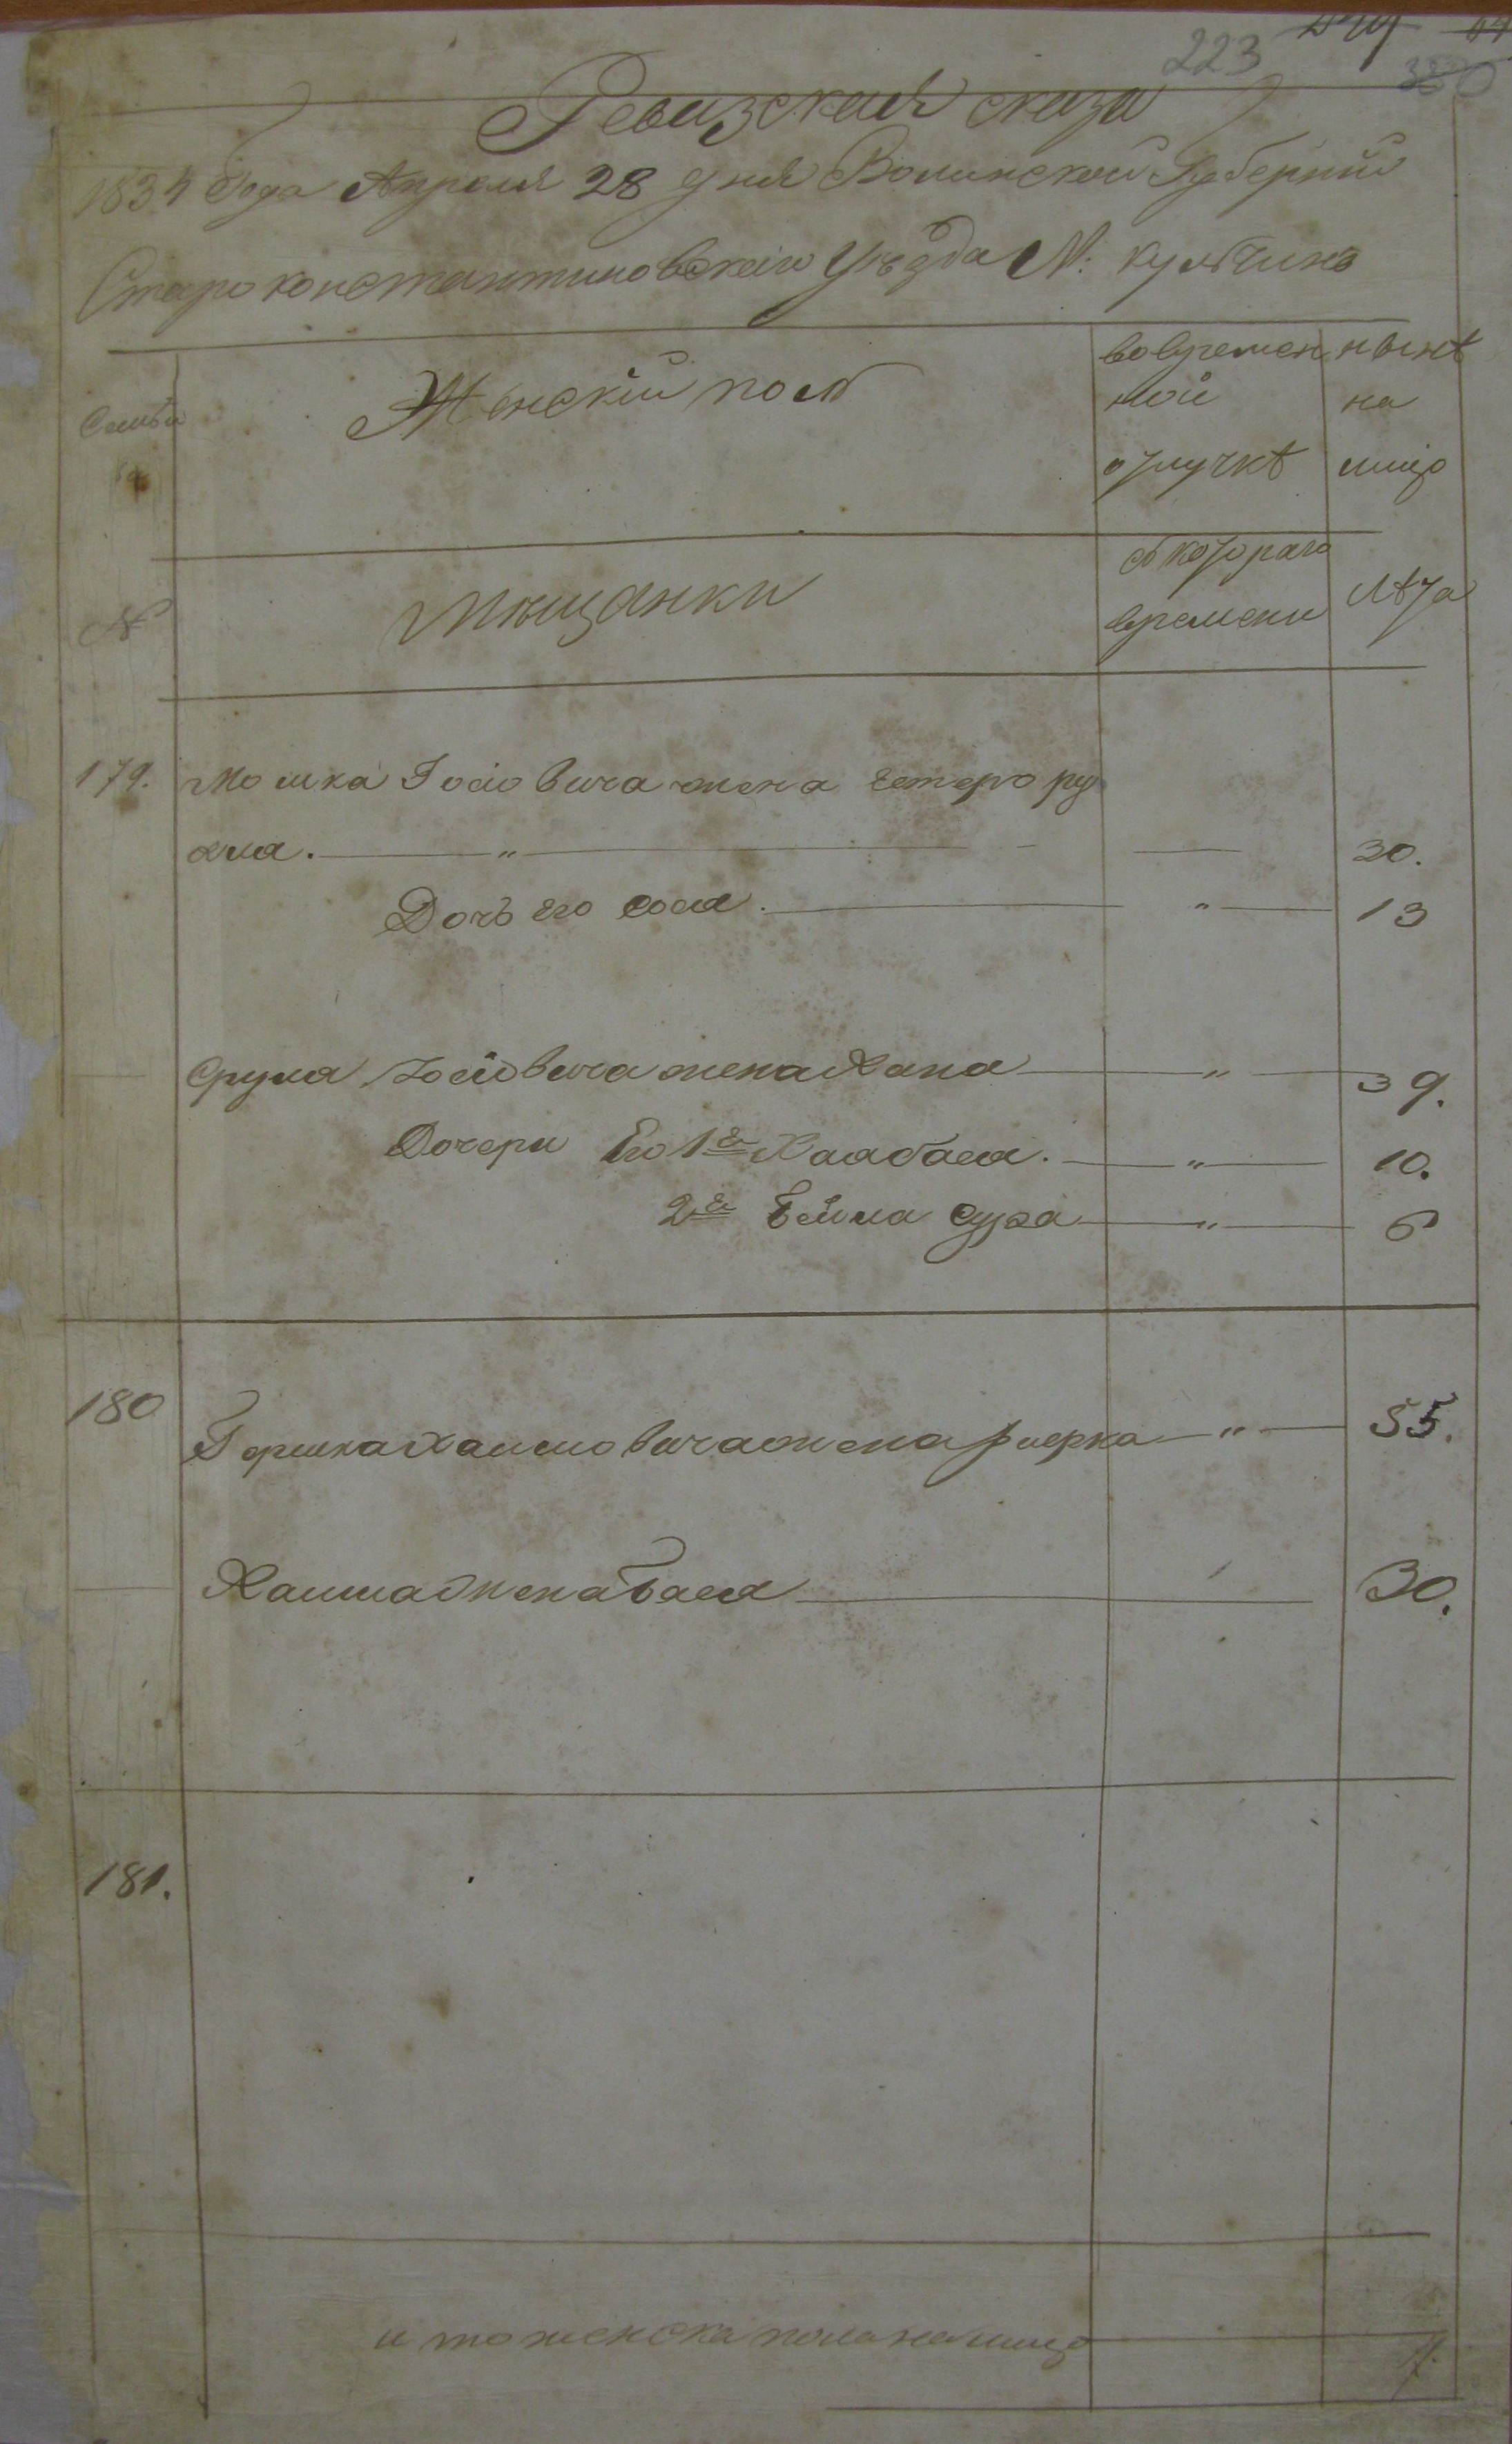 223
380
Ревизская сказа
1834 Года Апреля 28 дня Волинской Губернии
Староконстантиновскаго Уезда М: Кульчинъ
Семьи
Женскій полъ
вовремен
ной
отлучкѣ
нынѣ
на
лицо
№
Мещанки
съ котораго
времени
лѣта
179. Мошка Іосіовича жена Естеро ру
хля. — " — 30.
Дочь его Сося. — " — 13
Срула Іосіовича жена Хана — " — 39.
Дочери Его 1я Хаябася. — " — 10.
2я Бейла Сура — " — 6
180 Гершка Хаимовича жена — " — 55.
Хаима жена Бася — 30.
181.
итого женска пола налицо — 7.